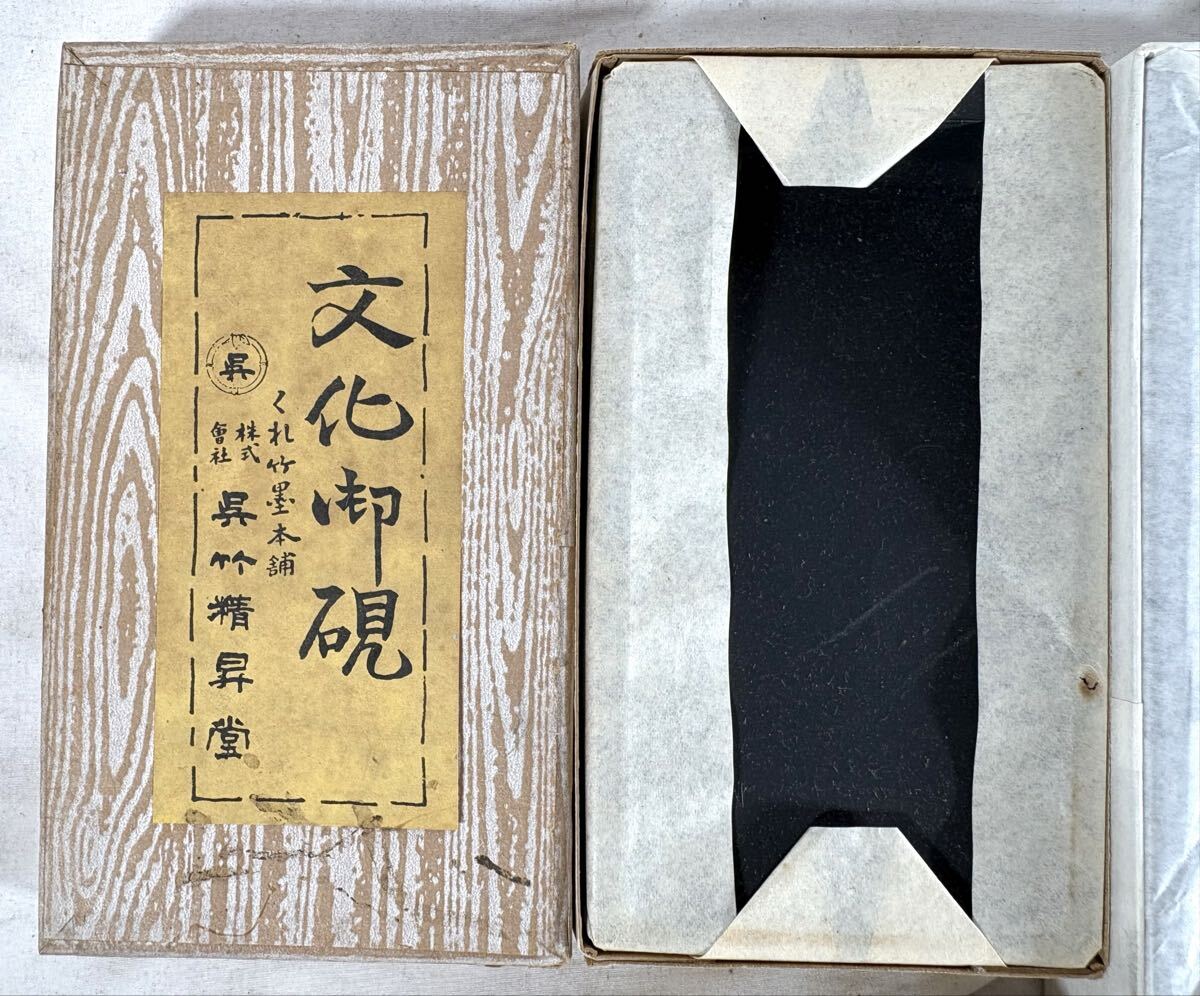 文化御硯
くれ竹墨本舗
呉
株式
會社
呉竹精昇堂